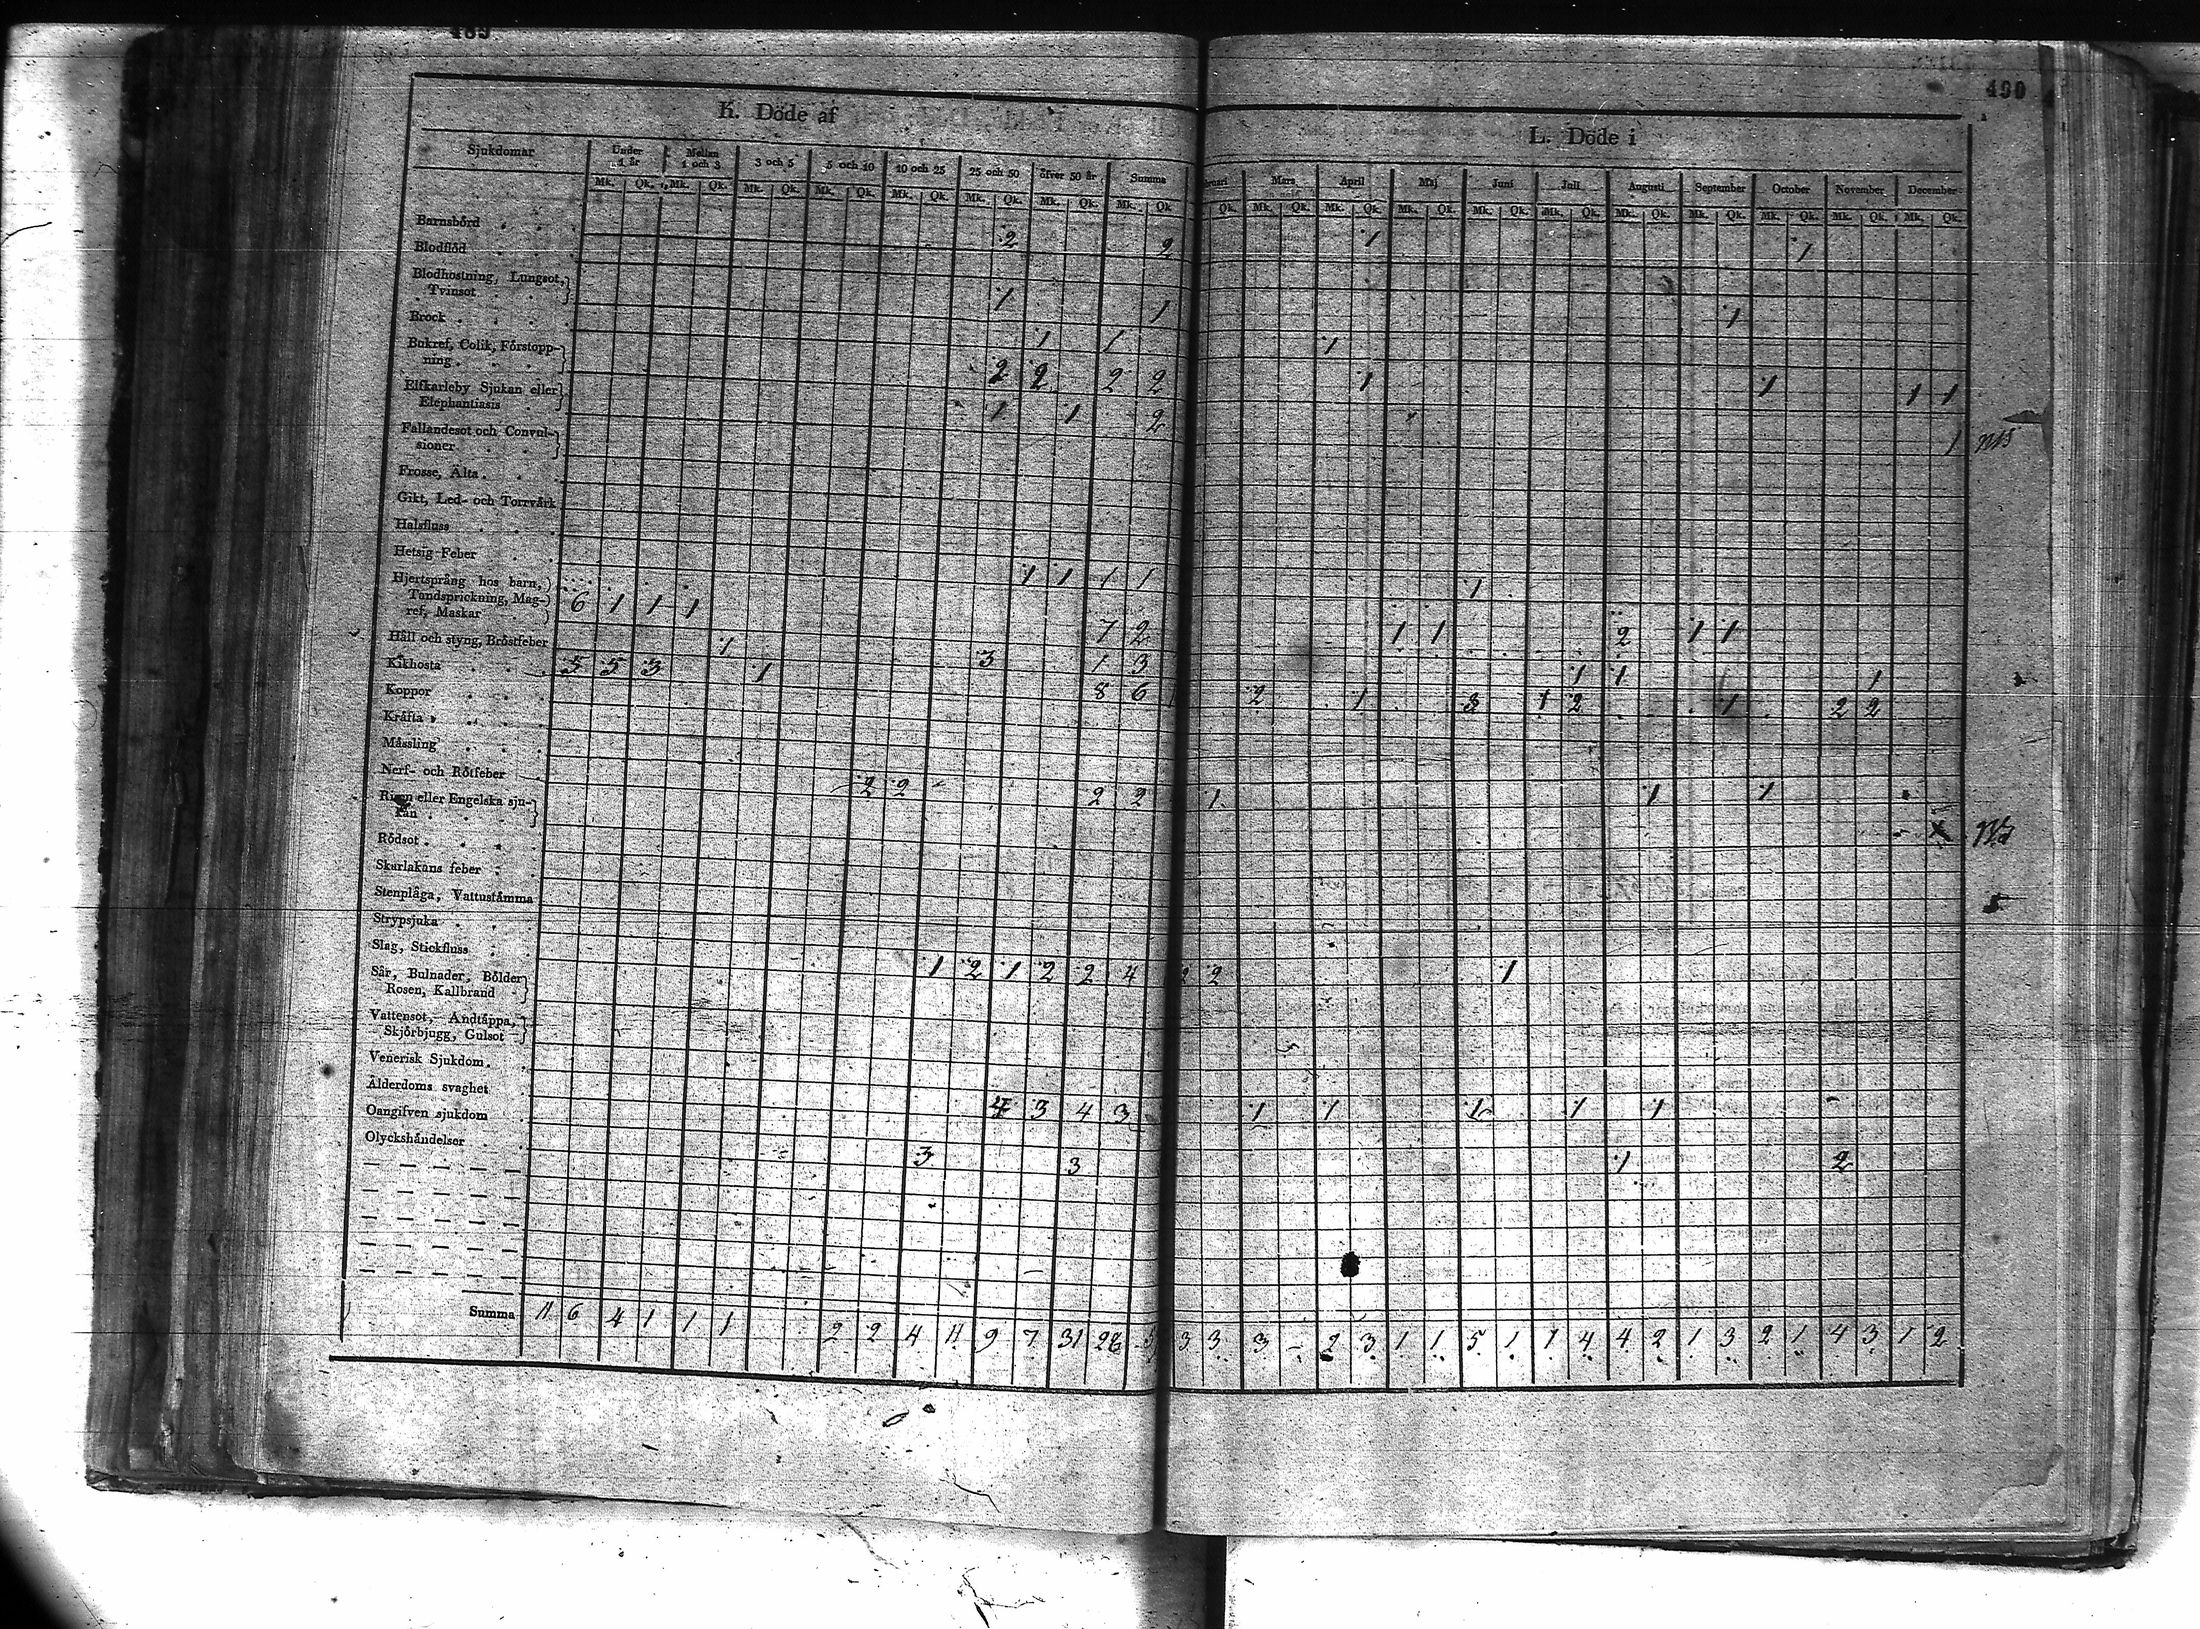 490
K. Döde af
L. Döde i
Sjukdomar Under 1 år Mellan 1 och 3 3 och 5 5 och 10 10 och 25 25 och 50 öfver 50 år Summa
Mars April Maj Juni Juli Augusti September October November December
Mk. Qk. Mk. Qk. Mk. Qk. Mk. Qk. Mk. Qk. Mk. Qk. Mk. Qk. Mk. Qk
Qk. Mk. Qk. Mk. Qk. Mk. Qk. Mk. Qk. Mk. Qk. Mk. Qk. Mk. Qk. Mk. Qk. Mk. Qk. Mk. Qk.
Barnsbörd 2 2 1 1
Blodflöd
Blodhostning, Lungsot,
Tvinsot 1 1 1
Brock 1 1 1
Bukref, Colik, Förstopp-
ning 2 2 2 2 1 1 1 1
Elfkarleby Sjukan eller
Elephantiasis 1 1 2 1
Fallandesot och Convul-
sioner
Frosse, Älta
Gikt, Led- och Torrvärk
Halsfluss
Hetsig Feber 1 1 1 1 1
Hjertsprång hos barn,
Tandsprickning, Mag-
ref, Maskar 6 1 1 1 7 2 1 1 2 1 1
Håll och styng, Bröstfeber 1 3 1 3 1 1 1
Kikhosta 5 5 3 1 8 6 2 1 3 1 2 1 2 2
Koppor
Kräfta
Mässling
Nerf- och Rötfeber 2 2 2 2 1 1 1
Risen eller Engelska sju-
kan
Rödsot
Skarlakans feber
Stenplåga, Vattustämma
Strypsjuka
Slag, Stickfluss 1 2 1 2 2 4 2 2 1
Sår, Bulnader, Bölder
Rosen, Kallbrand
Vattensot, Andtäppa,
Skjörbjugg, Gulsot
Venerisk Sjukdom
Ålderdoms svaghet 4 3 4 3 1 1 1 1 1
Oangifven sjukdom
Olyckshändelser 3 3 1 2
Summa 11 6 4 1 1 1 2 2 4 11 9 7 31 28 3 3 3 2 3 1 1 5 1 1 4 4 2 1 3 2 1 4 3 1 2